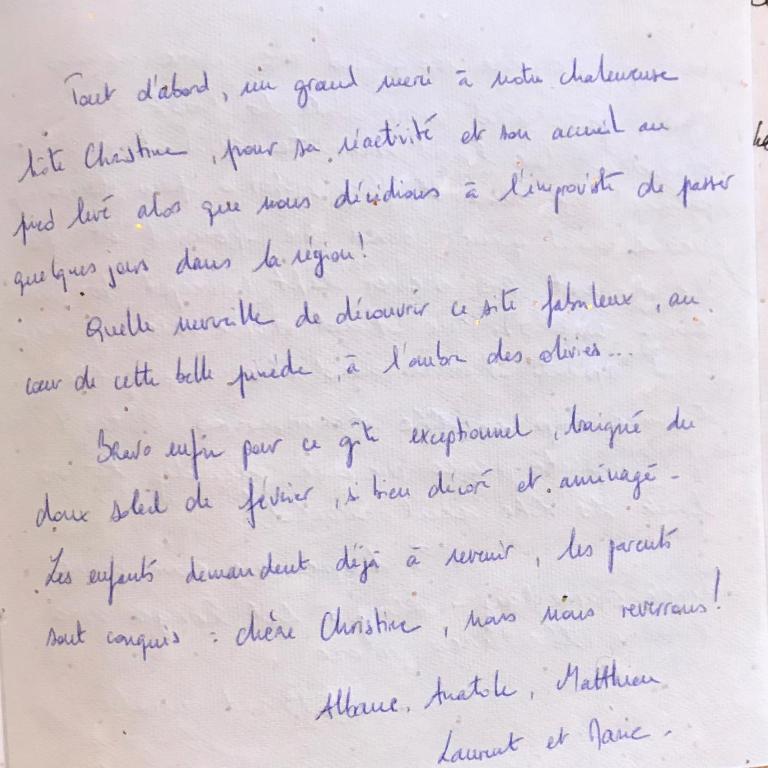 Tout d'abord, un grand merci à notre chaleureuse
hôte Christine, pour sa réactivité et son accueil au
pied levé alors que nous décidions à l'improviste de passer
quelques jours dans la région!
Quelle merveille de découvrir ce site fabuleux, au
cœur de cette belle pinède, à l'ombre des oliviers...
Bravo enfin pour ce gîte exceptionnel, baigné du
doux soleil de février, si bien décoré et aménagé -
Les enfants demandent déjà à revenir, les parents
sont conquis : chère Christine, nous nous reverrons!
Albane, Anatole, Matthieu
Laurent et Marie.